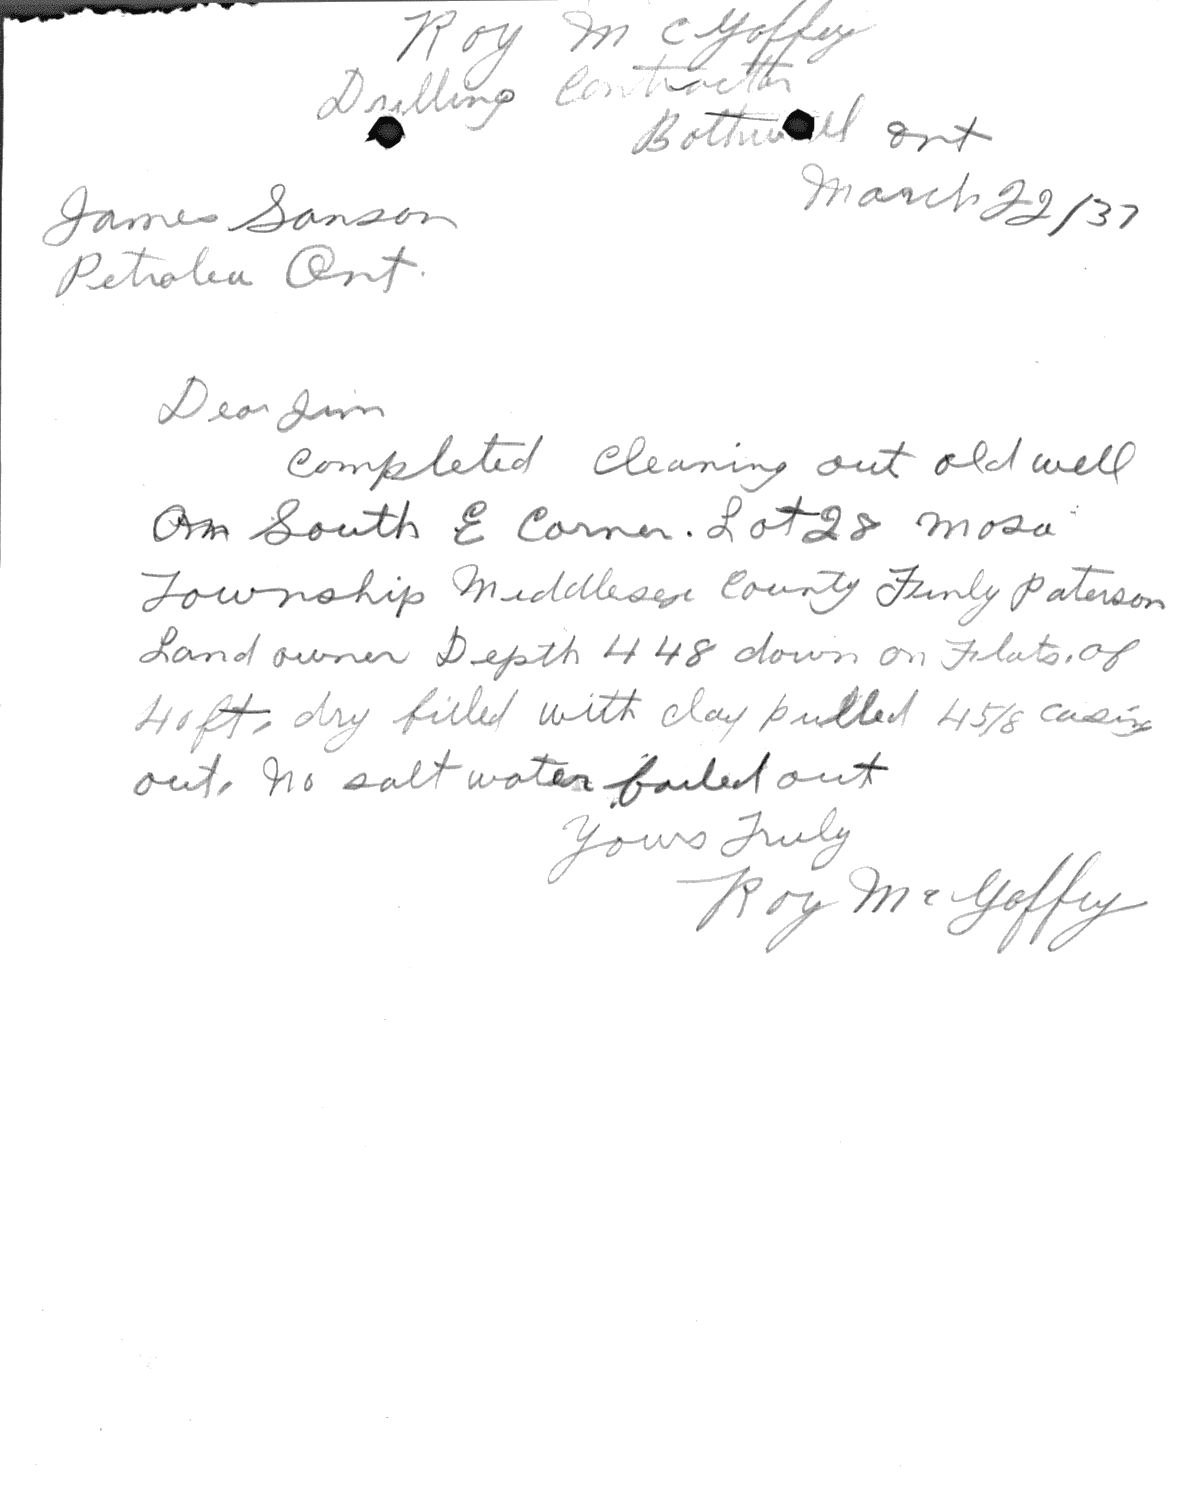 Roy McGaffey
Drilling Contractor
Bothwell Ont
March 22/37
James Sanson
Petrolea Ont.
Dear Jim
Completed cleaning out old well
On South E Corner. Lot 28 Mosa
Township Middlesex County Finly Paterson
Land owner Depth 448 down on Flats. of
40 ft, dry filled with clay pulled 4 5/8 casing
out. No salt water bailed out
Yours Truly
Roy McGaffey